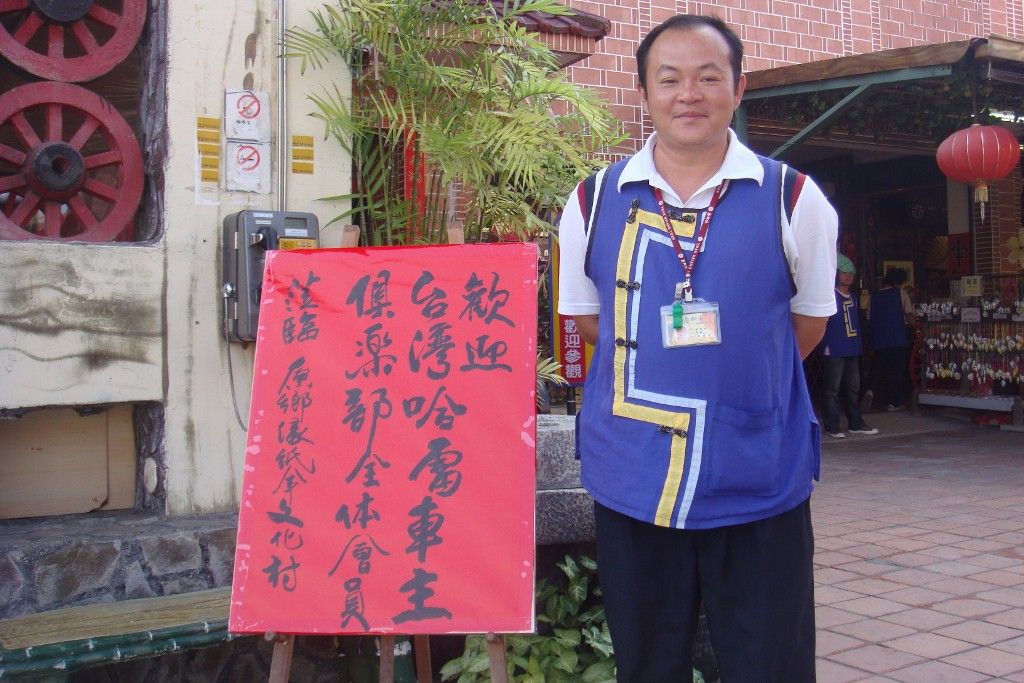 歡迎
台灣哈雷車主
俱楽部全体會員
蒞臨 原鄉緣紙傘文化村
歡迎參觀